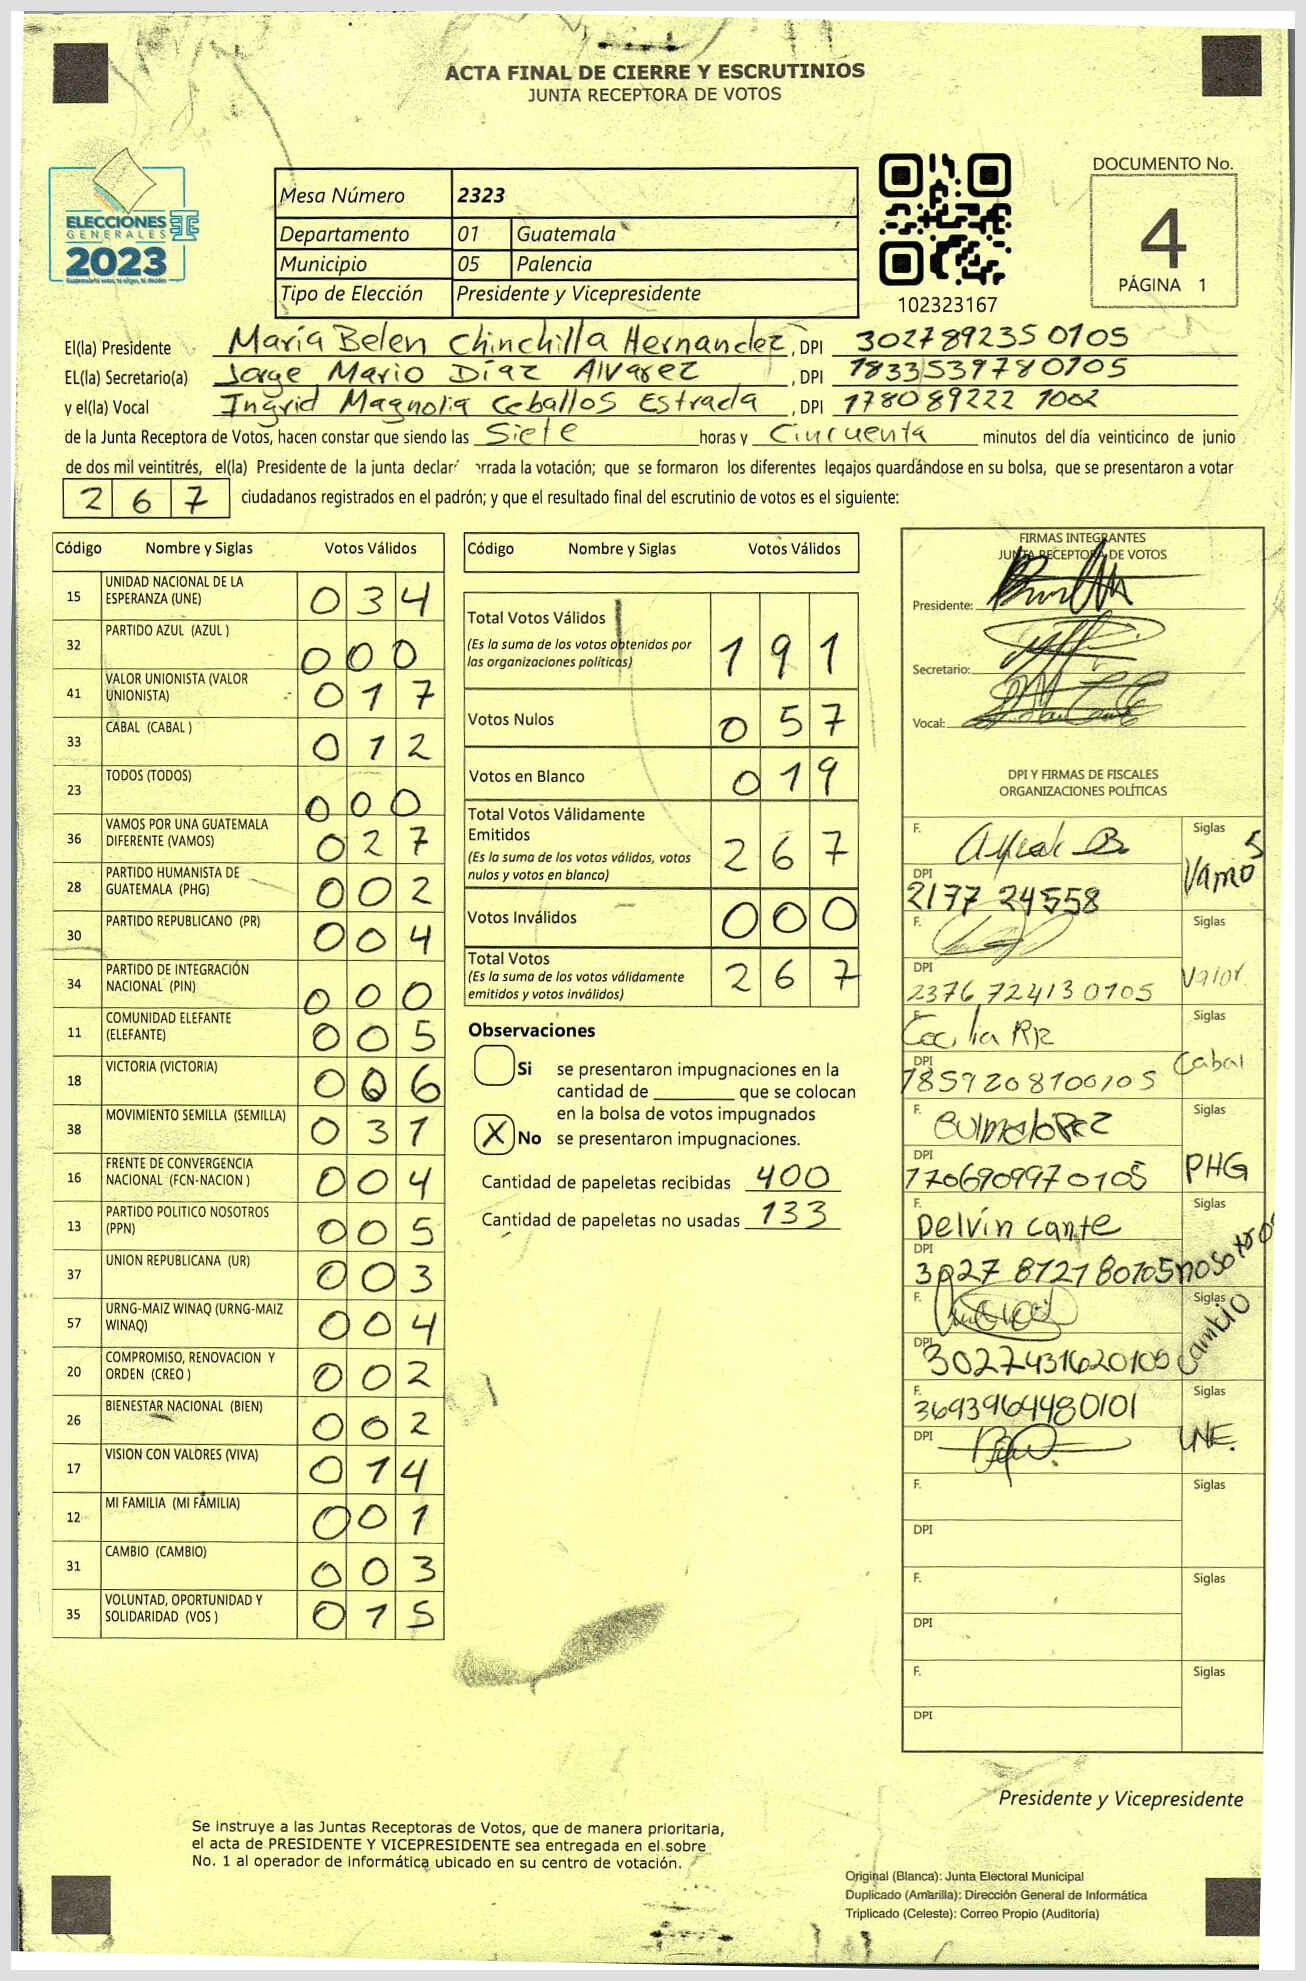 ACTA FINAL DE CIERRE Y ESCRUTINIOS
JUNTA RECEPTORA DE VOTOS
ELECCIONES
GENERALES
2023
Mesa Número 2323
Departamento 01 Guatemala
Municipio 05 Palencia
Tipo de Elección Presidente y Vicepresidente
102323167
DOCUMENTO No.
4
PÁGINA 1
El(la) Presidente María Belen Chinchilla Hernandez, DPI 302789235 0105
EL(la) Secretario(a) Jorge Mario Díaz Alvarez, DPI 1833539780105
y el(la) Vocal Ingrid Magnolia Ceballos Estrada, DPI 178089222 1002
de la Junta Receptora de Votos, hacen constar que siendo las Siete horas y Cincuenta minutos del día veinticinco de junio
de dos mil veintitrés, el(la) Presidente de la junta declar rrada la votación; que se formaron los diferentes legajos guardándose en su bolsa, que se presentaron a votar
267 ciudadanos registrados en el padrón; y que el resultado final del escrutinio de votos es el siguiente:
Código Nombre y Siglas Votos Válidos
15 UNIDAD NACIONAL DE LA ESPERANZA (UNE) 034
32 PARTIDO AZUL (AZUL ) 000
41 VALOR UNIONISTA (VALOR UNIONISTA) 017
33 CABAL (CABAL ) 012
23 TODOS (TODOS) 000
36 VAMOS POR UNA GUATEMALA DIFERENTE (VAMOS) 027
28 PARTIDO HUMANISTA DE GUATEMALA (PHG) 002
30 PARTIDO REPUBLICANO (PR) 004
34 PARTIDO DE INTEGRACIÓN NACIONAL (PIN) 000
11 COMUNIDAD ELEFANTE (ELEFANTE) 005
18 VICTORIA (VICTORIA) 006
38 MOVIMIENTO SEMILLA (SEMILLA) 031
16 FRENTE DE CONVERGENCIA NACIONAL (FCN-NACION ) 004
13 PARTIDO POLITICO NOSOTROS (PPN) 005
37 UNION REPUBLICANA (UR) 003
57 URNG-MAIZ WINAQ (URNG-MAIZ WINAQ) 004
20 COMPROMISO, RENOVACION Y ORDEN (CREO ) 002
26 BIENESTAR NACIONAL (BIEN) 002
17 VISION CON VALORES (VIVA) 014
12 MI FAMILIA (MI FAMILIA) 001
31 CAMBIO (CAMBIO) 003
35 VOLUNTAD, OPORTUNIDAD Y SOLIDARIDAD (VOS ) 015
Código Nombre y Siglas Votos Válidos
Total Votos Válidos
(Es la suma de los votos obtenidos por
las organizaciones políticas) 191
Votos Nulos 057
Votos en Blanco 019
Total Votos Válidamente
Emitidos
(Es la suma de los votos válidos, votos
nulos y votos en blanco) 267
Votos Inválidos 000
Total Votos
(Es la suma de los votos válidamente
emitidos y votos inválidos) 267
Observaciones
Si se presentaron impugnaciones en la
cantidad de ________ que se colocan
en la bolsa de votos impugnados
X No se presentaron impugnaciones.
Cantidad de papeletas recibidas 400
Cantidad de papeletas no usadas 133
FIRMAS INTEGRANTES
JUNTA RECEPTORA DE VOTOS
Presidente:
Secretario:
Vocal:
DPI Y FIRMAS DE FISCALES
ORGANIZACIONES POLÍTICAS
F. Siglas Vamos
DPI 2177 24558
F. Siglas Valor
DPI 2376 72413 0105
F. Cecilia Siglas Cabal
DPI 1859208100105
F. Siglas PHG
DPI 1706909970105
F. Delvin Cante Siglas nosotros
DPI 3027 872180105
F. Siglas Cambio
DPI 3027431620105
F. 3693964480101 Siglas UNE.
DPI
F. Siglas
DPI
F. Siglas
DPI
F. Siglas
DPI
Presidente y Vicepresidente
Se instruye a las Juntas Receptoras de Votos, que de manera prioritaria,
el acta de PRESIDENTE Y VICEPRESIDENTE sea entregada en el sobre
No. 1 al operador de informática ubicado en su centro de votación.
Original (Blanca): Junta Electoral Municipal
Duplicado (Amarilla): Dirección General de Informática
Triplicado (Celeste): Correo Propio (Auditoría)